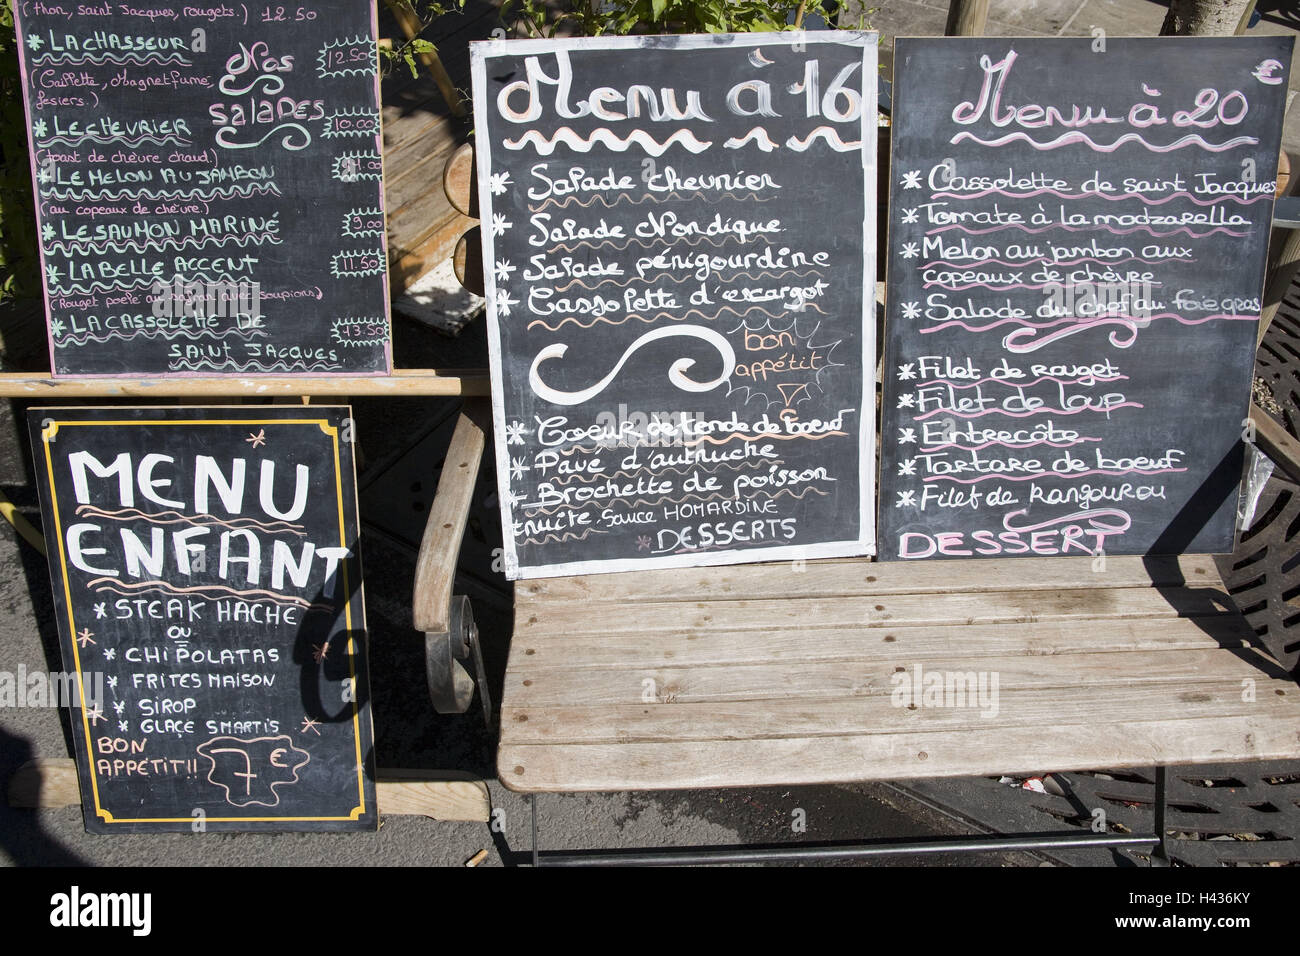 (thon, saint Jacques, rougets.) 12.50
* LA CHASSEUR 12.50
Nos
SALADES
fesiers.)
* LE CHEVRIER 10.00
(toast de chèvre chaud.)
* LE MELON AU JAMBON
(au copeaux de chèvre.)
* LE SAUMON MARINÉ 9.00
* LA BELLE ACCENT 11.50
(Rouget poele au safran avec soupions)
* LA CASSOLETTE DE 13.50
SAINT JACQUES
MENU
ENFANT
* STEAK HACHE
OU
* CHIPOLATAS
* FRITES MAISON
* SIROP
* GLAÇE SMARTIS
BON
APPÉTIT!!
7€
Menu à 16
* Salade chevrier
* Salade Nordique
* Salade périgourdine
* Cassolette d'escargot
bon
appétit
!
* Coeur de tende de boeuf
* Pavé d'autruche
* Brochette de poisson
truite. Sauce HOMARDINE
* DESSERTS
€
Menu à 20
* Cassolette de saint Jacques
* Tomate à la modzarella
* Melon au jambon aux
copeaux de chèvre
* Salade du chef au foie gras
* Filet de rouget
* Filet de loup
* Entrecôte
* Tartare de boeuf
* Filet de Kangourou
DESSERT
alamy
Image ID: H436KY
www.alamy.com
alamy stock photo